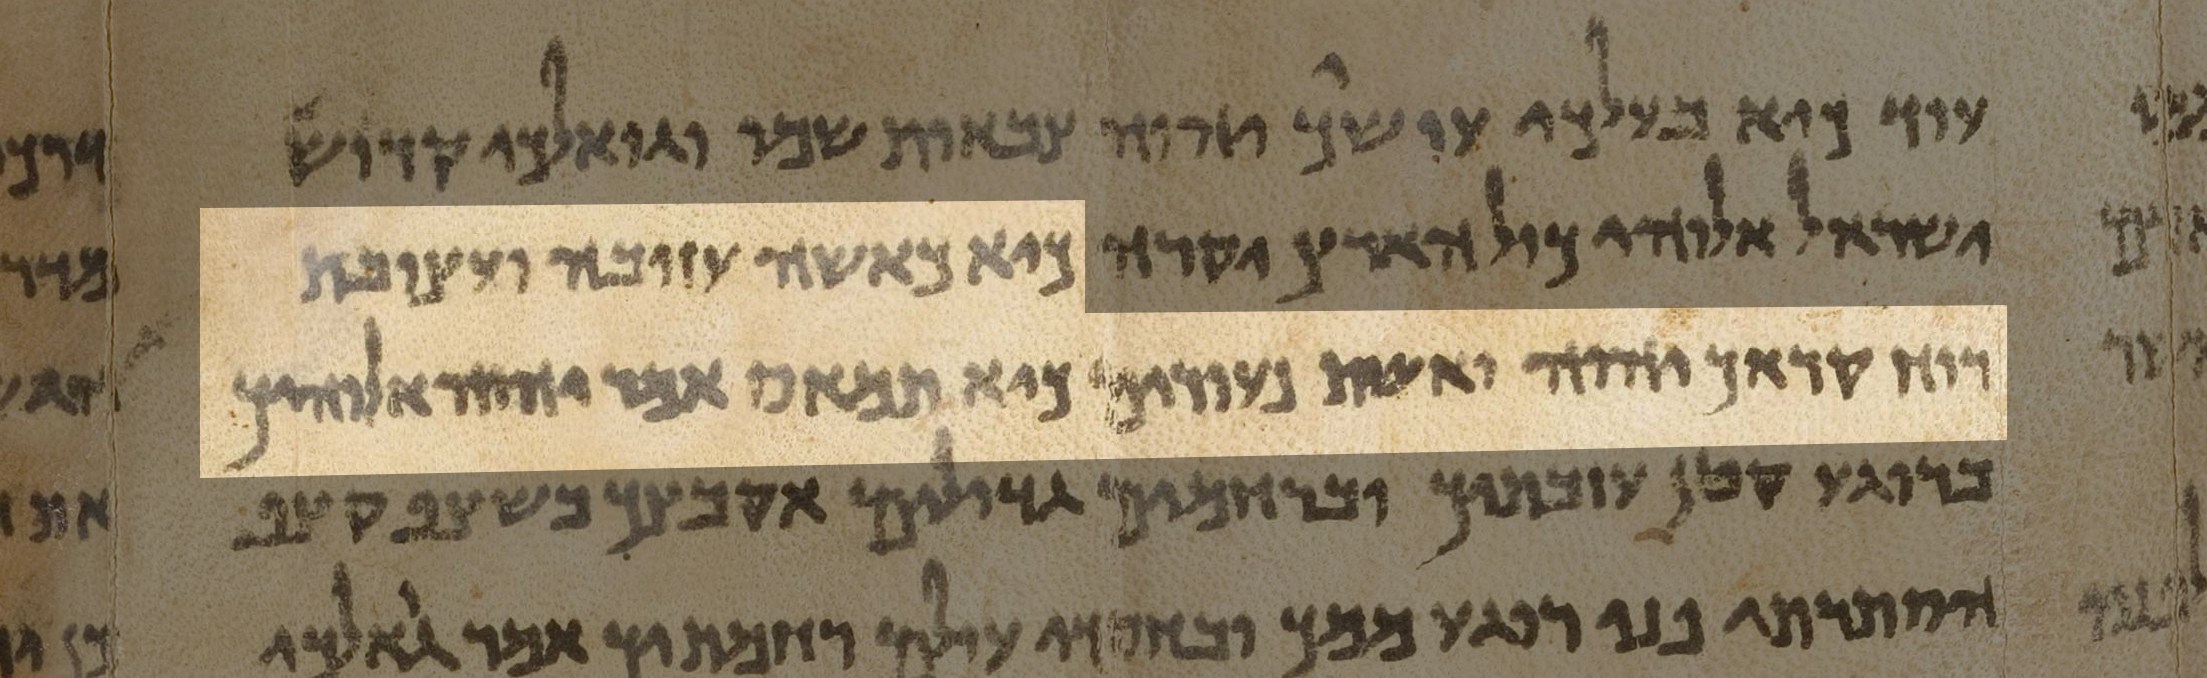 עוד כיא בעלכי עושך יהוה צבאות שמו וגואלכי קדוש
ישראל אלוהי כול הארץ יקרה כיא כאשה עזובה ועצובת
רוח קראך יהוה ואשת נעורים כיא תמאס אמר יהוה אלוהיך
ברוגע קטן עזבתיך וברחמים גדולים אקבצך בשצף קצף
הסתרתי פני רגע ממך ובחסדי עולם רחמתיך אמר גאלכי